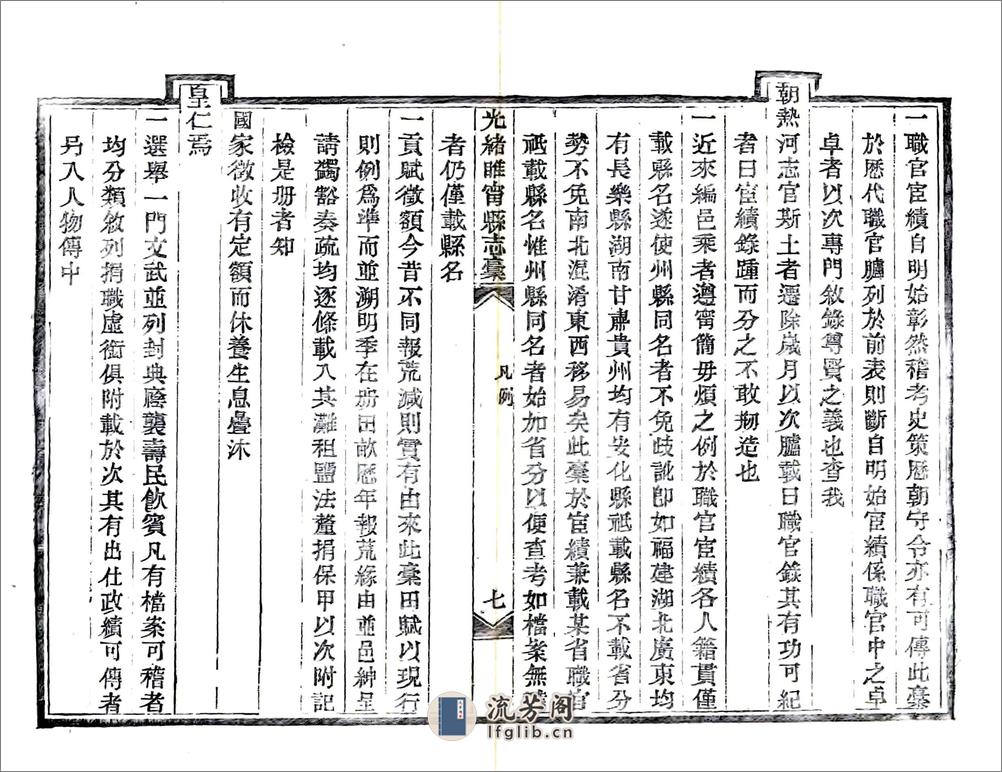 一職官宦績自明始彰然稽考史策歷朝守令亦有可傳此稾
於歷代職官臚列於前表則斷自明始宦績係職官中之卓
卓者以次專門敘錄尊賢之義也查我
朝熱河志官斯土者遷除歲月以次臚載曰職官錄其有功可紀
者曰宦績錄踵而分之不敢剏造也
一近來編邑乘者遵甯簡毋煩之例於職官宦績各人籍貫僅
載縣名遂使州縣同名者不免歧訛卽如福建湖北廣東均
有長樂縣湖南甘肅貴州均有安化縣祗載縣名不載省分
勢不免南北混淆東西移易矣此稾於宦績兼載某省職官
祗載縣名惟州縣同名者始加省分以便查考如檔案無
者仍僅載縣名
光緒睢甯縣志稾
凡例
七
一貢賦徵額今昔不同報荒減則實有由來此稾田賦以現行
則例爲準而並溯明季在册田畝歷年報荒緣由並邑紳呈
請蠲豁奏疏均逐條載入其灘租鹽法釐捐保甲以次附記
檢是册者知
國家徵收有定額而休養生息疊沐
皇仁焉
一選舉一門文武並列封典廕襲壽民飲賓凡有檔案可稽者
均分類敘列捐職虛銜俱附載於次其有出仕政績可傳者
另入人物傳中
流芳阁
lfglib.cn